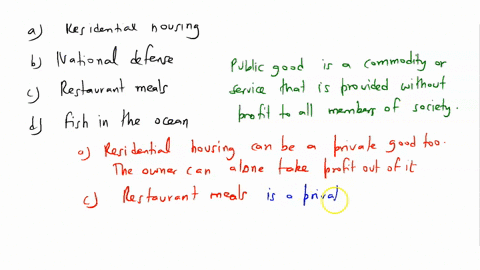 a) Residential housing
b) National defense
c) Restaurant meals
d) fish in the ocean
Public good is a commodity or
service that is provided without
profit to all members of society.
a) Residential housing can be a private good too.
The owner can alone take profit out of it
c) Restaurant meals is a privat